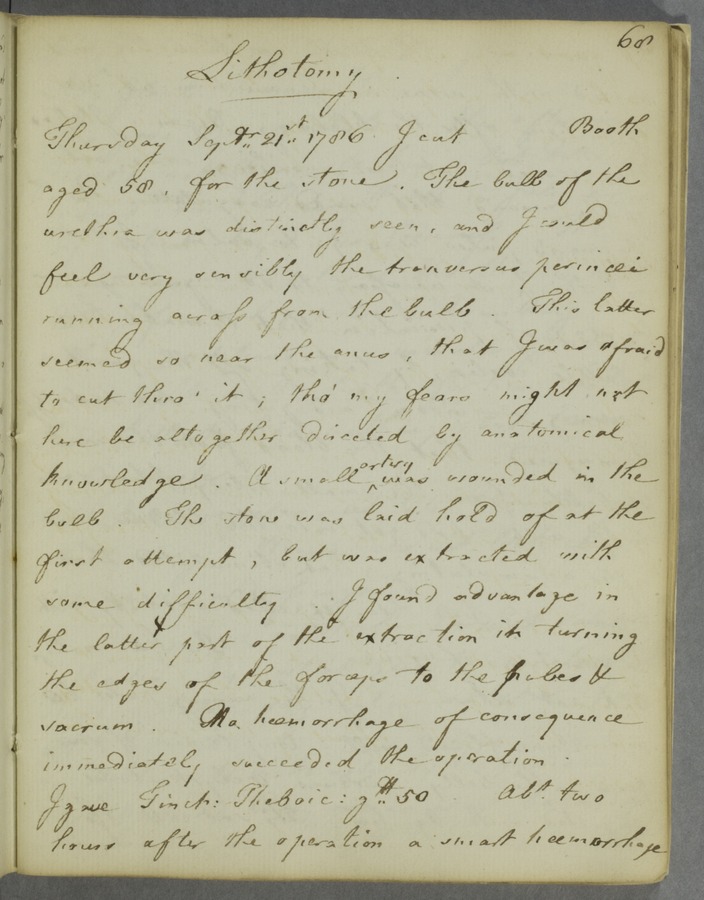 68
Lithotomy.
Thursday Septr. 21st. 1786 I cut Booth
aged 58, for the stone. The bulb of the
urethra was distinctly seen, and I could
feel very sensibly the tranversus perinaei
running across from the bulb. This latter
seemed so near the anus, that I was afraid
to cut thro' it; tho' my fears might not
here be altogether directed by anatomical
knowledge. A small artery was wounded in the
bulb. The stone was laid hold of at the
first attempt, but was extracted with
some difficulty. I found advantage in
the latter part of the extraction in turning
the edges of the forceps to the pubes &
sacrum. No haemorrhage of consequence
immediately succeeded the operation.
I gave Tinct: Thebaic: gtt. 50 Abt. two
hours after the operation a smart haemorrhage